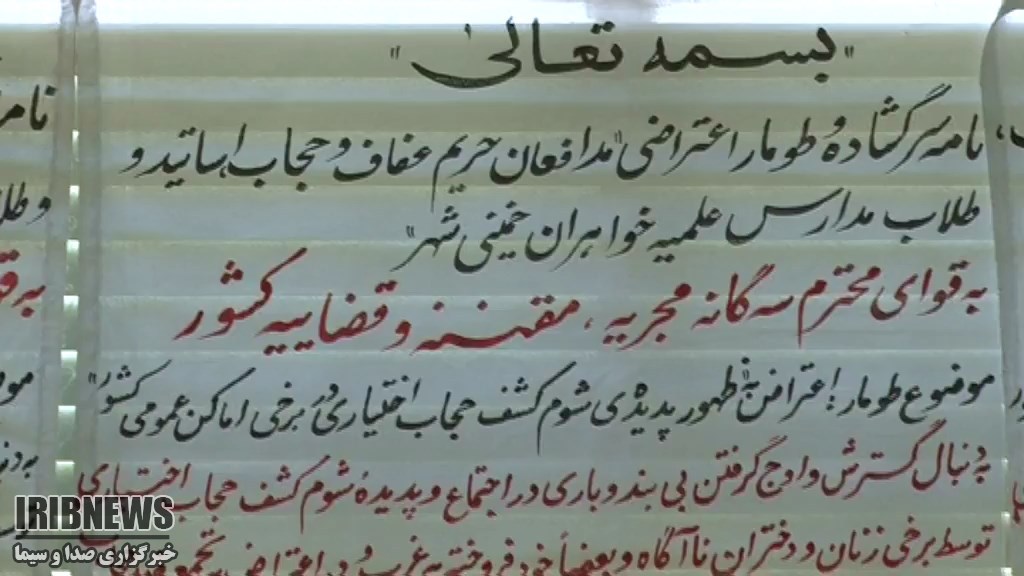 "بسمه تعالی"
نامه سرگشاده و طومار اعتراضی "مدافعان حریم عفاف و حجاب اساتید و
طلاب مدارس علمیه خواهران خمینی شهر"
به قوای محترم سه گانه مجریه، مقننه و قضاییه کشور
موضوع طومار: اعتراض به ظهور پدیده‌ی شوم کشف حجاب اختیاری در برخی اماکن عمومی کشور"
به دنبال گسترش و اوج گرفتن بی بندوباری در اجتماع و پدیدهٔ شوم کشف حجاب اختیاری
توسط برخی زنان و دختران ناآگاه و بعضاً خود فروخته به غرب و در اعتراض به
نامه
و طلا
به قو
موض
به دنب
IRIBNEWS
خبرگزاری صدا و سیما